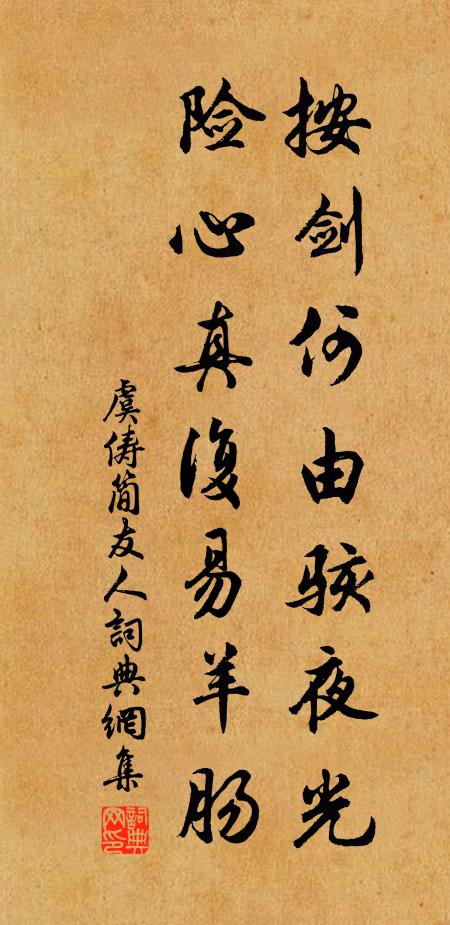 按剑何由骇夜光
险心真复易羊肠
虞俦简友人詞典網集
詞典网印